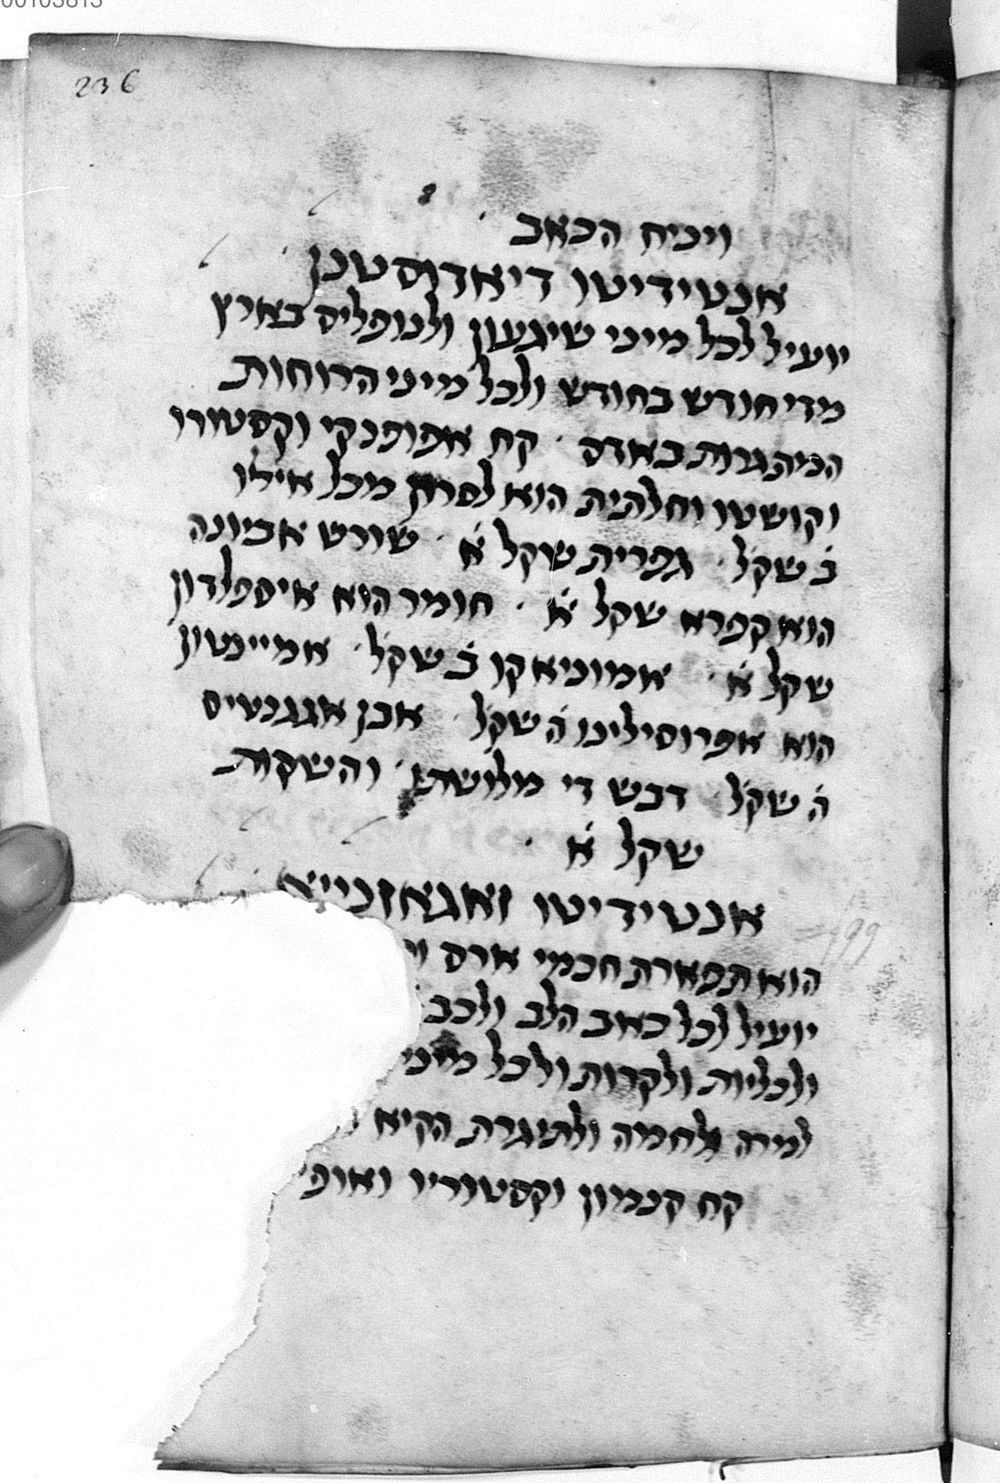 236
ויניח הכאב
אנטידיטו דיאדוסטנן
יועיל לכל מיני שיגעון ולנופליס בארץ
מדי חודש בחודש ולכל מיני הרוחות
המתגרות באדם קח אפופנקי וקסטורו
וקושטו וחלתית הוא לסרון מכל אילו
ב שקל גפרית שקל א שורש אביונה
הוא קפרא שקל א חומר הוא איספלדון
שקל א אמוניאקו ב שקל אמיינטון
הוא אפרוסילינו ה שקל אבן אגגטיס
ה שקל דבש די מלושתן והשקות
שקל א
אנטידיטו זאגאזנייא
הוא תפארת חכמי ארס
יועיל לכל כאב הלב ולכב
ולכליות ולקרות ולכל מיני
למרה לחמה ולתוגרת הקיא
קח קנמון וקסטוריו ואופי